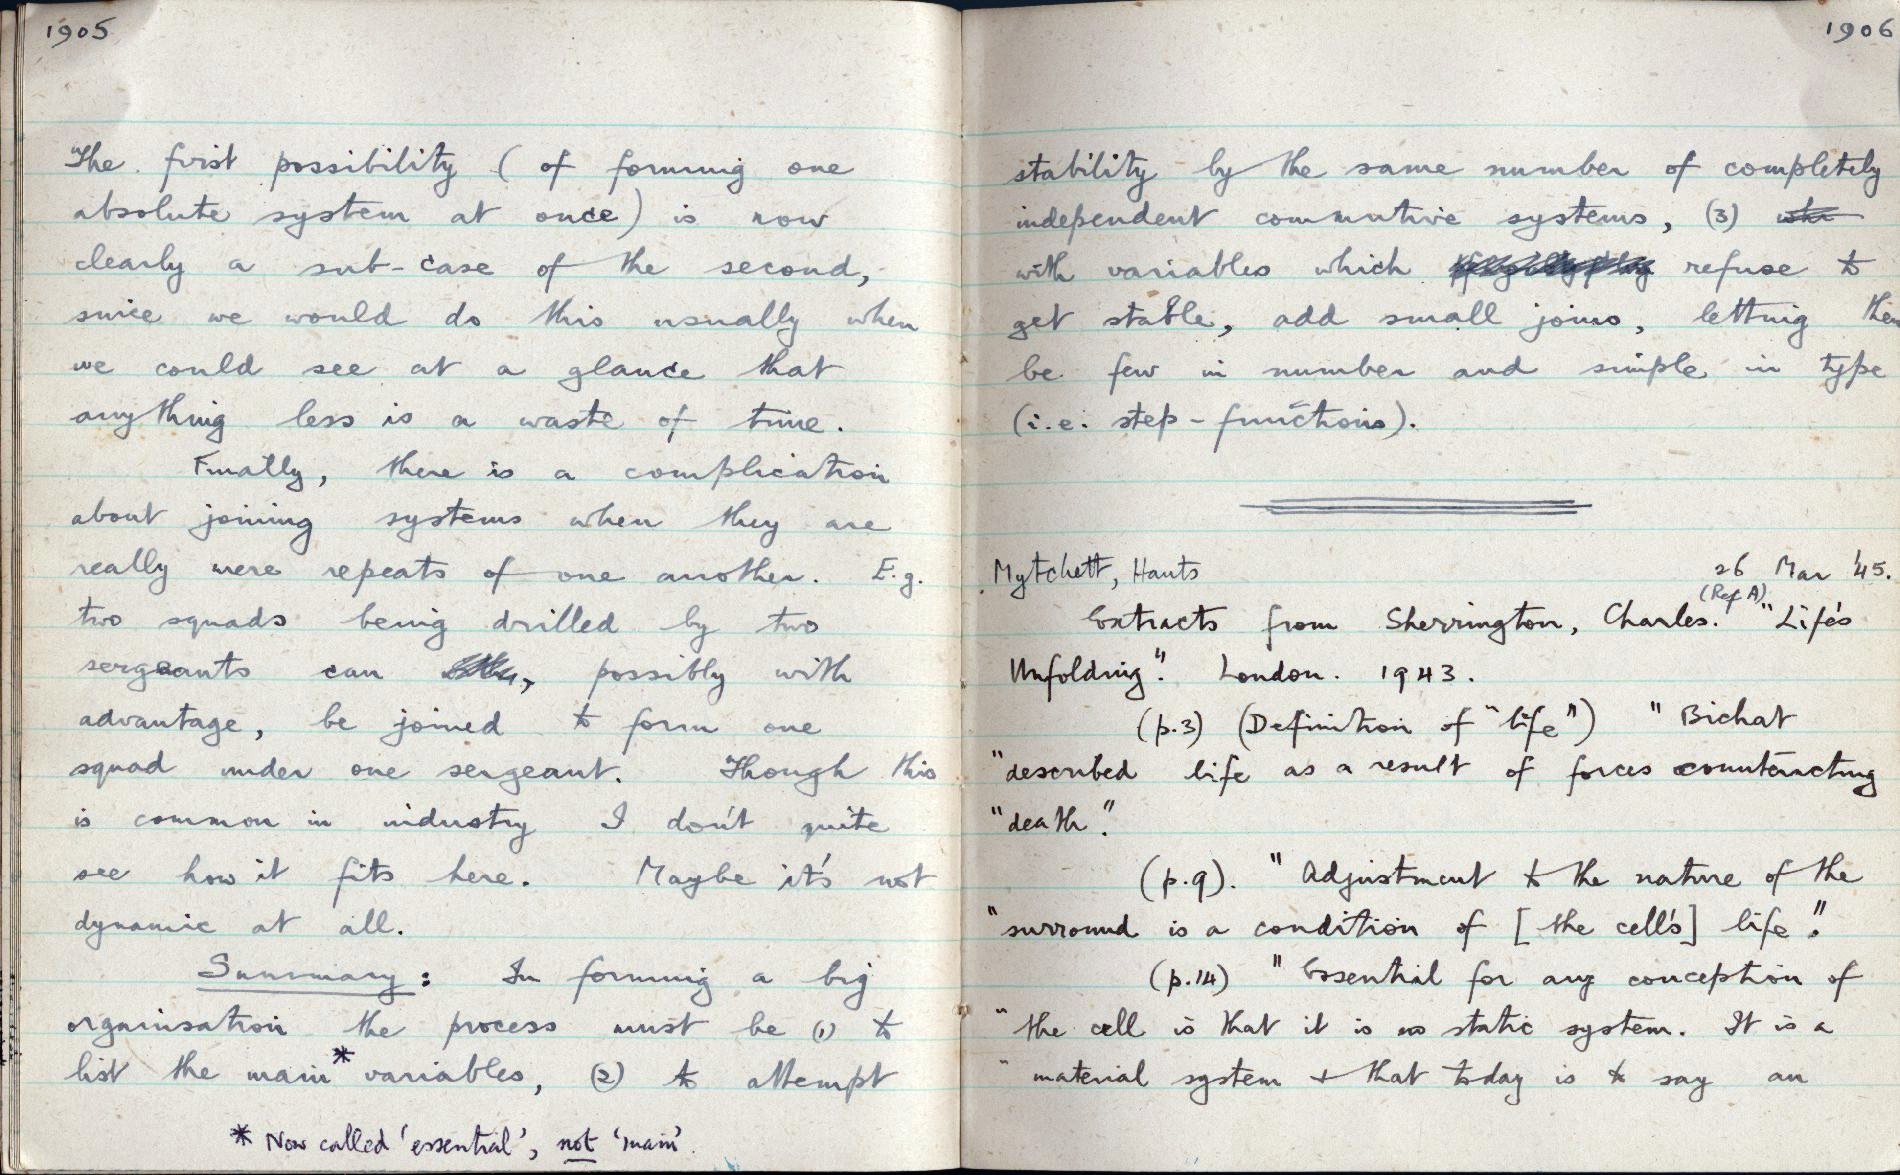 1905
The first possibility (of forming one
absolute system at once) is now
clearly a sub-case of the second,
since we would do this usually when
we could see at a glance that
anything less is a waste of time.
Finally, there is a complication
about joining systems when they are
really were repeats of one another. E.g.
two squads being drilled by two
sergeants can , possibly with
advantage, be joined to form one
squad under one sergeant. Though this
is common in industry I don't quite
see how it fits here. Maybe it's not
dynamic at all.
Summary: In forming a big
organisation the process must be (1) to
list the main* variables, (2) to attempt
* Now called 'essential', not 'main'.
1906
stability by the same number of completely
independent commutive systems, (3)
with variables which refuse to
get stable, add small joins, letting them
be few in number and simple in type
(i.e. step-functions).
Mytchett, Hants 26 Mar '45.
(Ref A)
Extracts from Sherrington, Charles. "Life's
Unfolding". London. 1943.
(p.3) (Definition of "life") "Bichat
"described life as a result of forces counteracting
"death".
(p.9). "Adjustment to the nature of the
"surround is a condition of [the cell's] life".
(p.14) "Essential for any conception of
"the cell is that it is no static system. It is a
"material system & that today is to say an